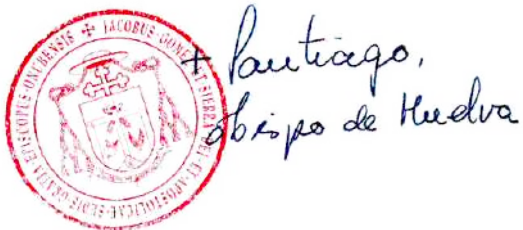 ✠ JACOBUS GOMEZ ET SIERRA DEI ET APOSTOLICAE SEDIS GRATIA EPISCOPUS ONUBENSIS
+ Santiago,
obispo de Huelva